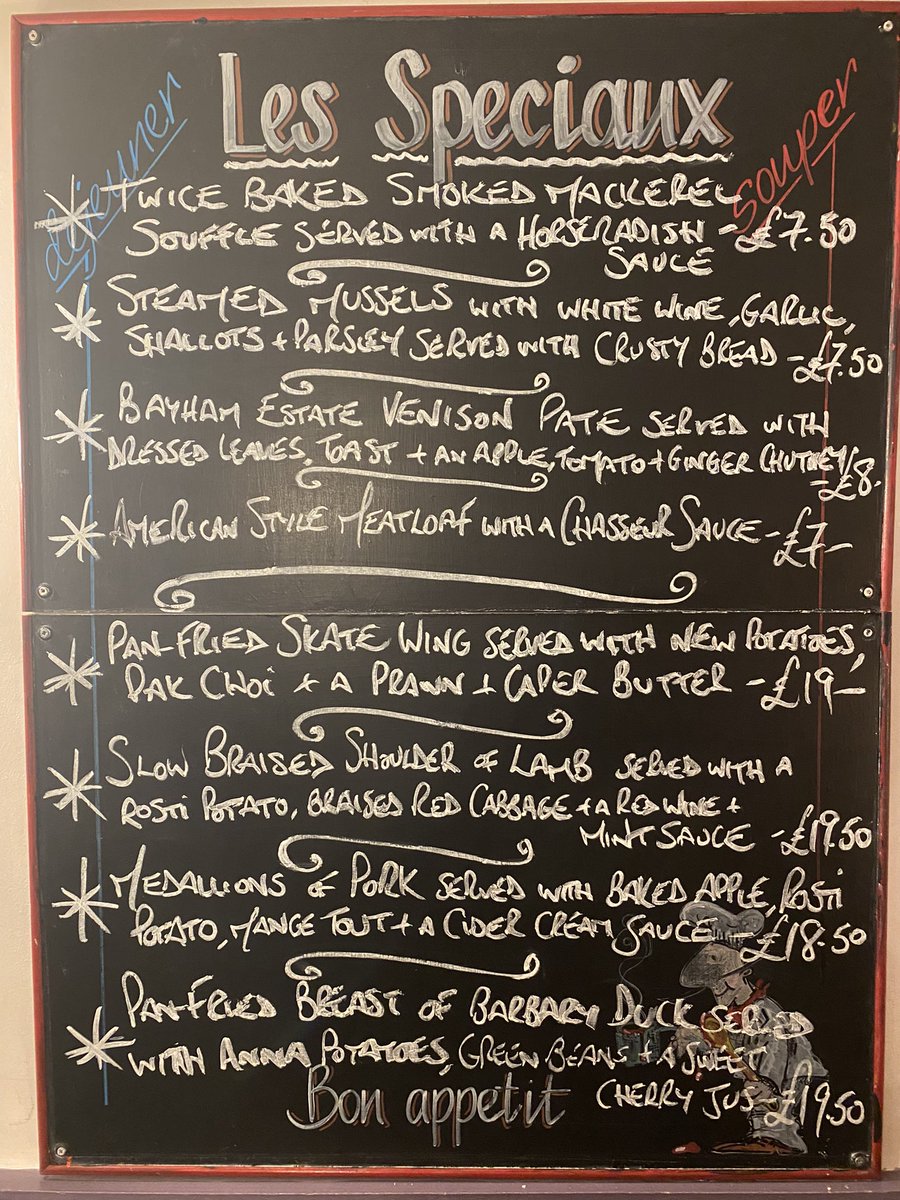 Les Speciaux
déjeuner
souper
TWICE BAKED SMOKED MACKEREL
SOUFFLE SERVED WITH A HORSERADISH - £7.50
SAUCE
STEAMED MUSSELS WITH WHITE WINE, GARLIC,
SHALLOTS + PARSLEY SERVED WITH CRUSTY BREAD - £7.50
BAYHAM ESTATE VENISON PATE SERVED WITH
DRESSED LEAVES, TOAST + AN APPLE, TOMATO + GINGER CHUTNEY
- £8.
AMERICAN STYLE MEATLOAF WITH A CHASSEUR SAUCE - £7-
PAN-FRIED SKATE WING SERVED WITH NEW POTATOES,
PAK CHOI + A PRAWN + CAPER BUTTER - £19-
SLOW BRAISED SHOULDER OF LAMB SERVED WITH A
ROSTI POTATO, BRAISED RED CABBAGE + A RED WINE +
MINT SAUCE - £19.50
MEDALLIONS OF PORK SERVED WITH BAKED APPLE, ROSTI
POTATO, MANGE TOUT + A CIDER CREAM SAUCE - £18.50
PAN-FRIED BREAST OF BARBARY DUCK SERVED
WITH ANNA POTATOES, GREEN BEANS + A SWEET
CHERRY JUS - £19.50
Bon appetit